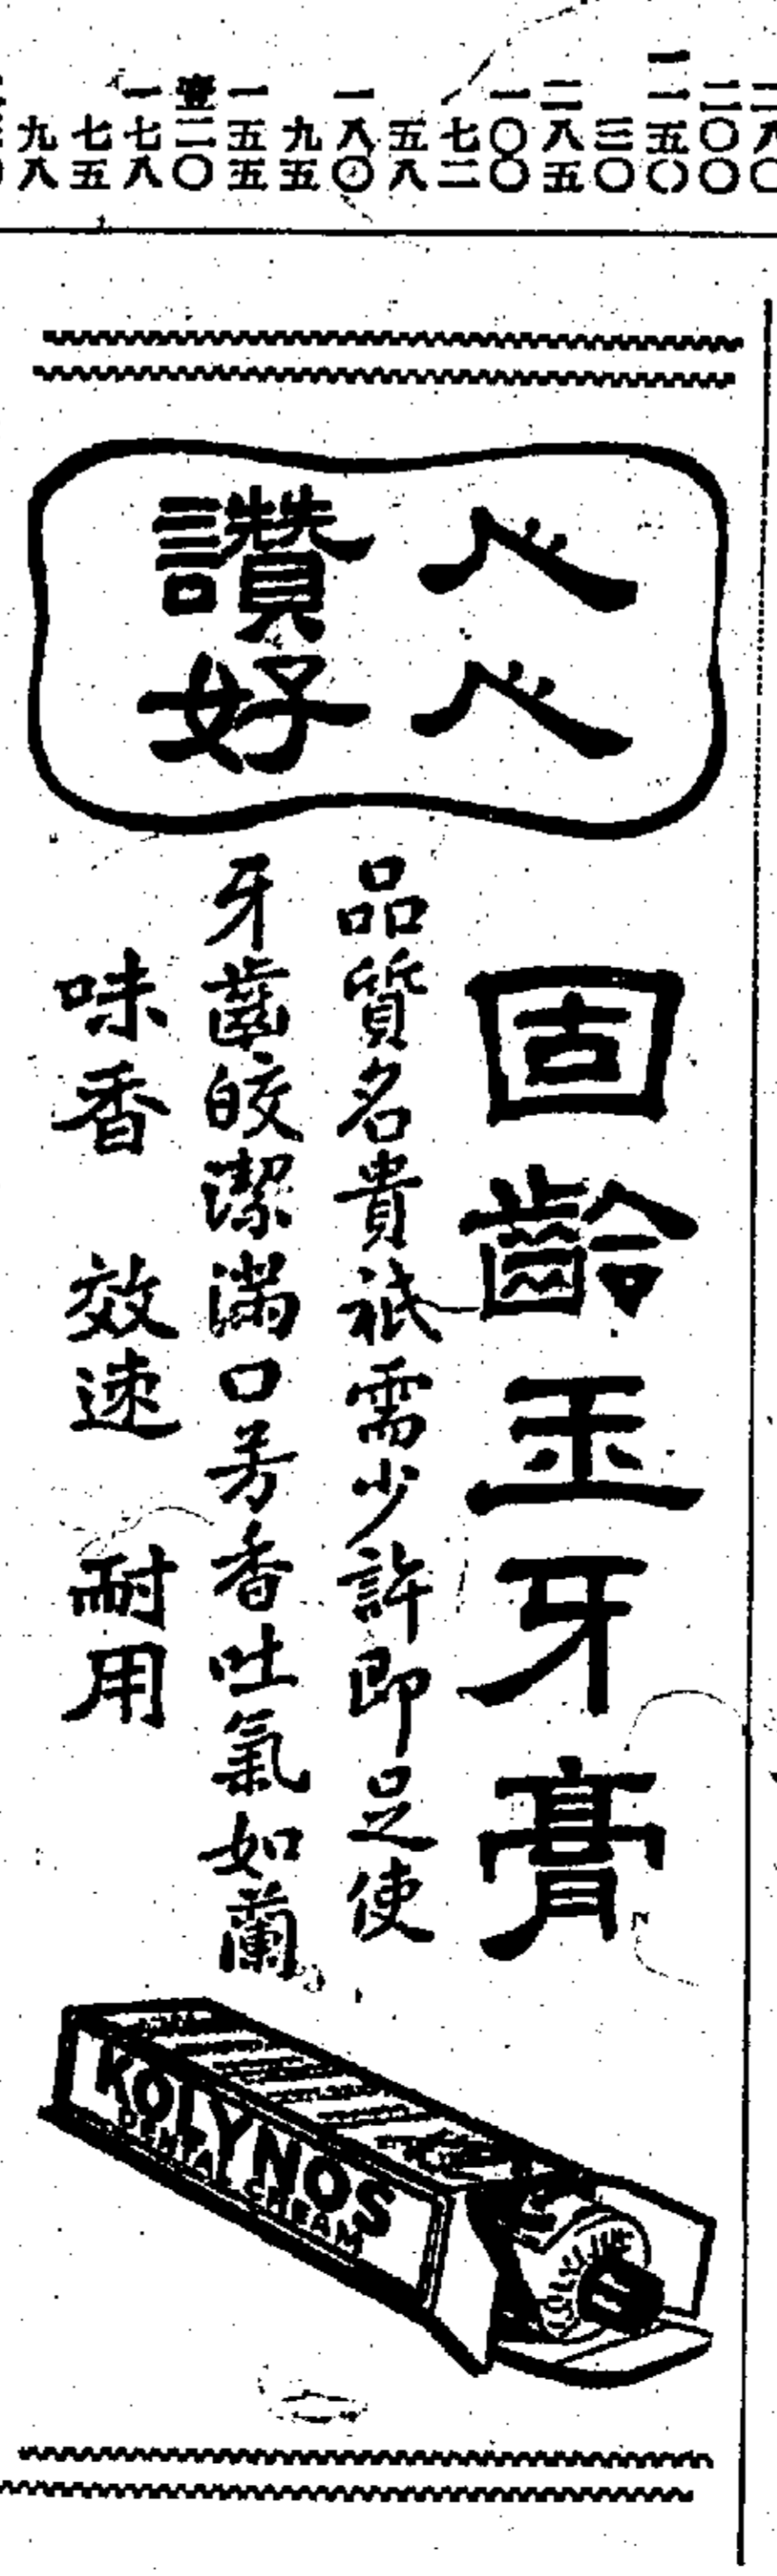 二〇〇
三〇
二八五
一〇〇
七二
五八
一八〇
九五
一五五
壹二〇
一七八
七五
九八
人人
讚好
固齡玉牙膏
品質名貴祇需少許即足使
牙齒皎潔滿口芳香吐氣如蘭
味香 效速 耐用
KOLYNOS
DENTAL CREAM